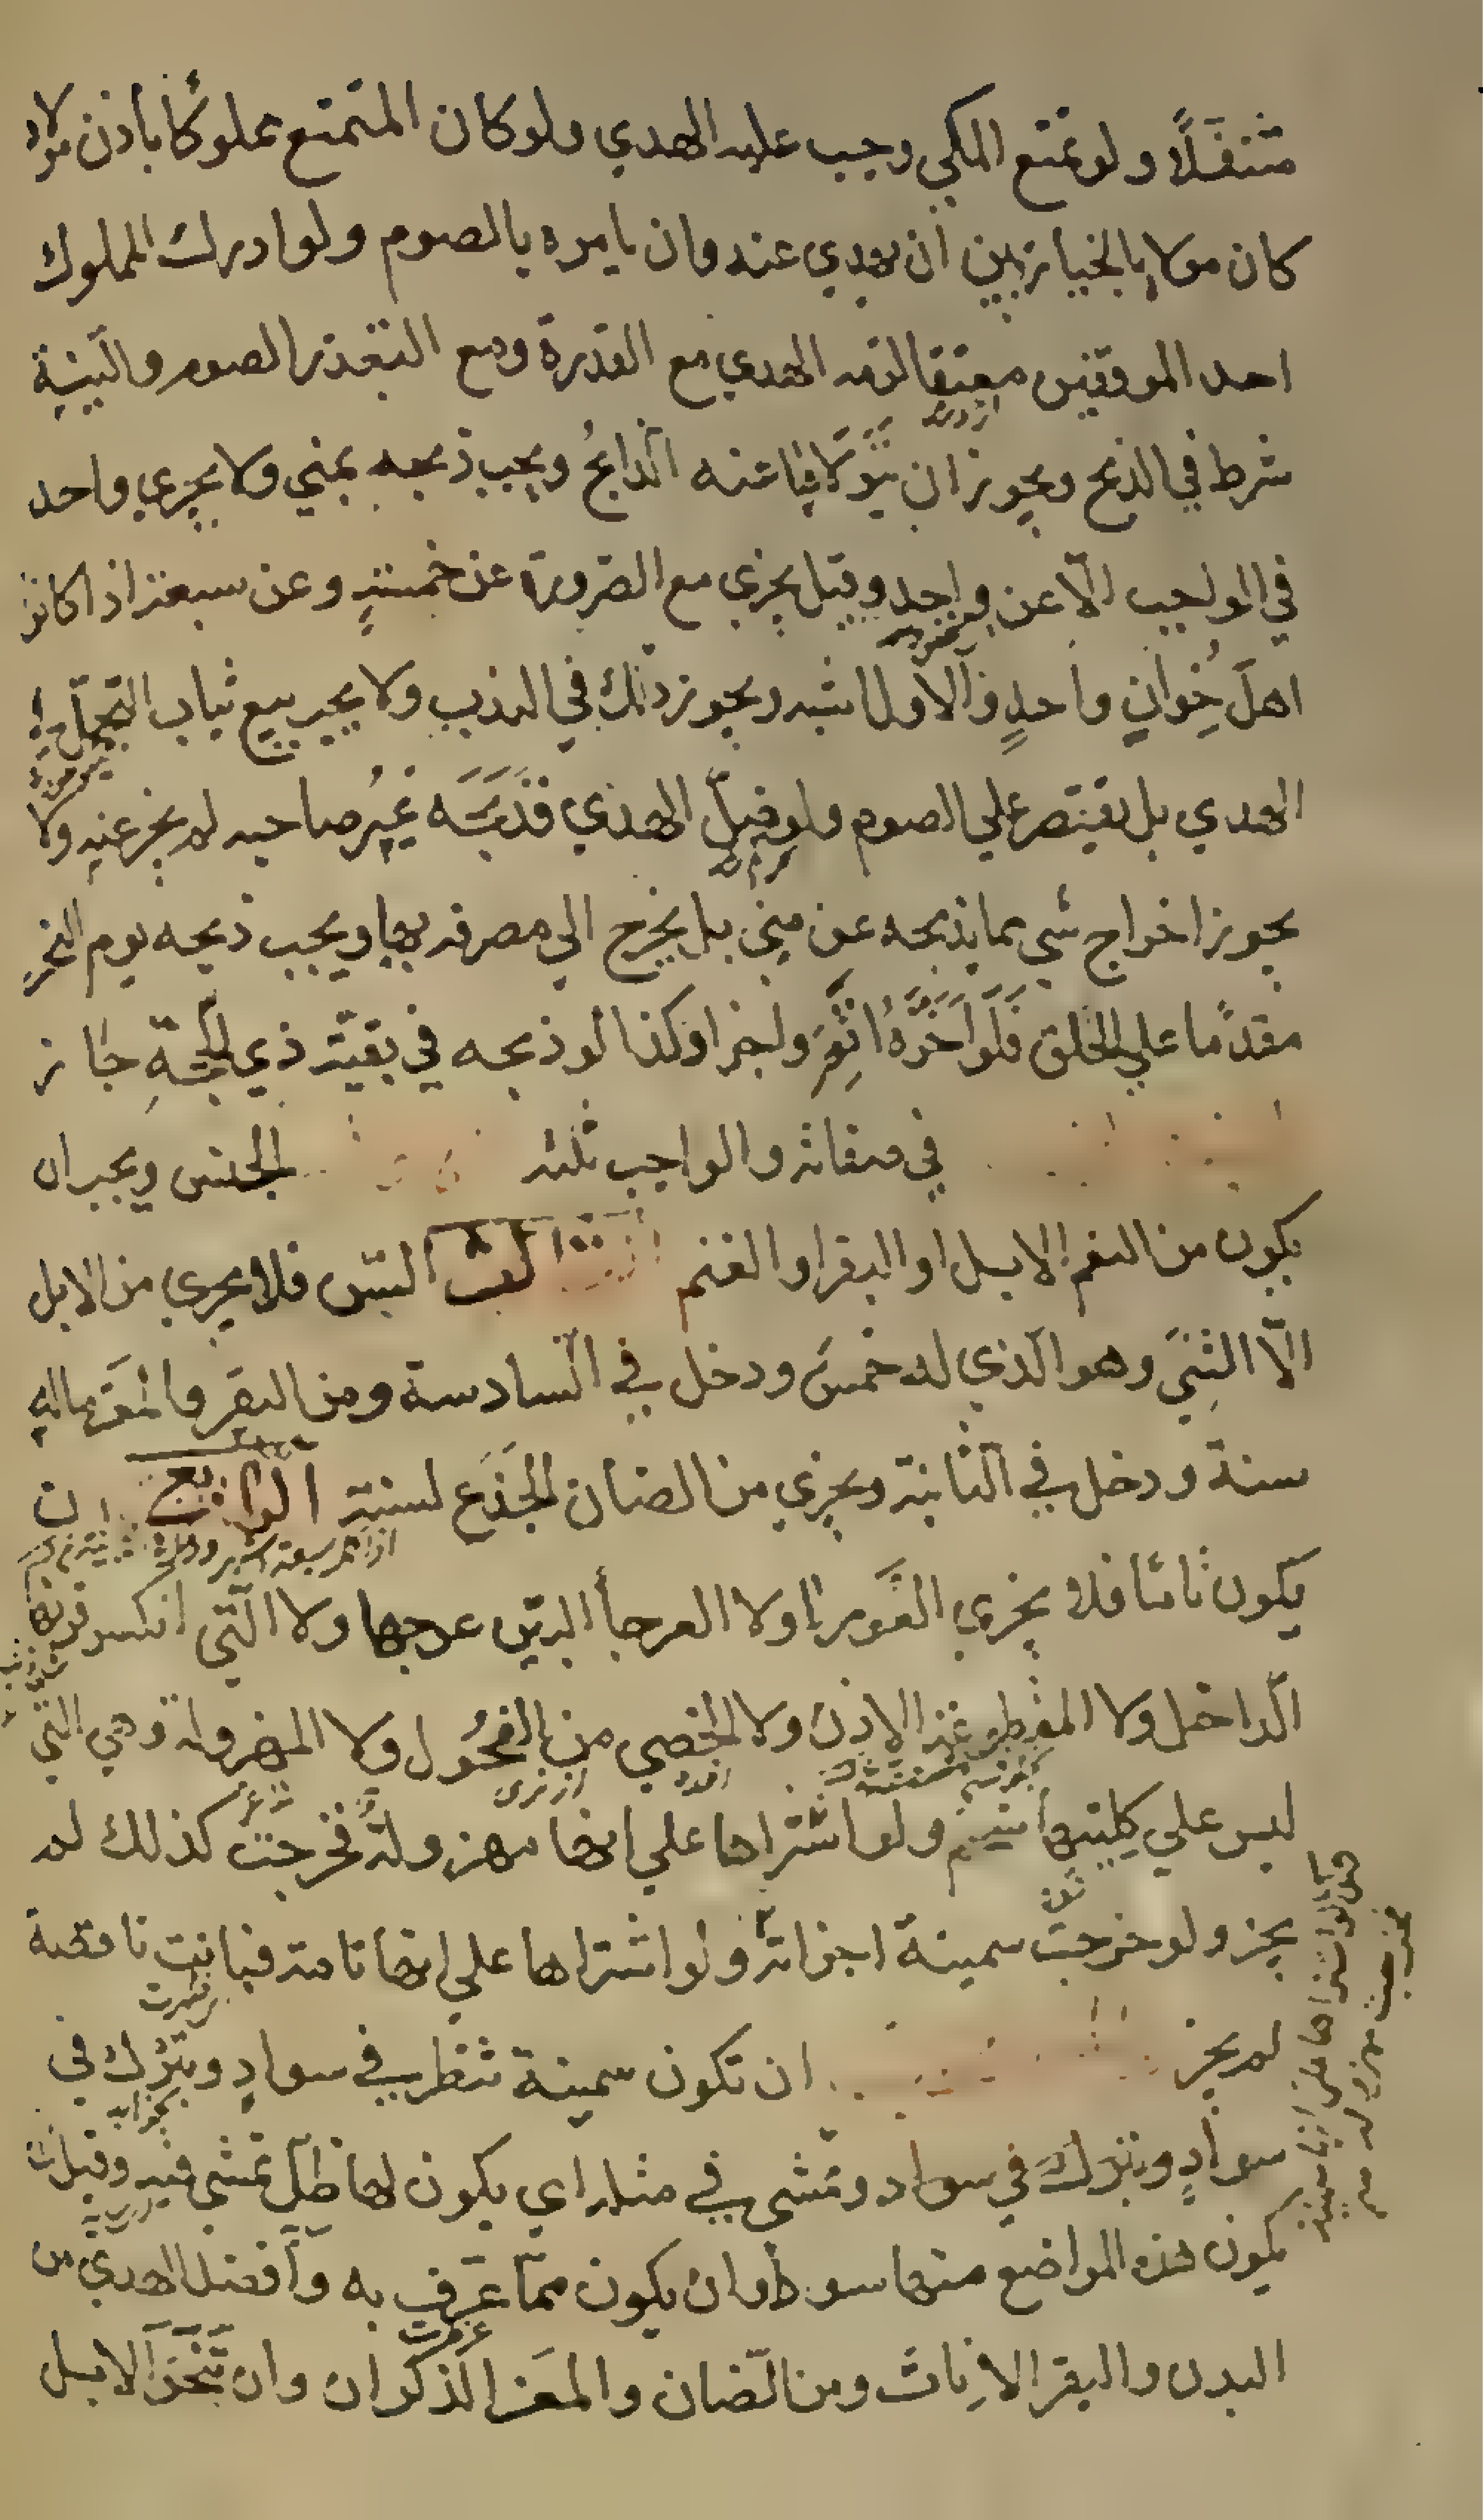 متنفلًا ولو تمتع المكي وجب عليه الهدي ولو كان المتمتع مملوكًا بأذن مولاه
كان مولاه بالخيار بين ان يهدي عنه وان يامره بالصوم ولو ادرك المملوك
احد الموقفين معتقا لزمه الهدي مع القدرة ومع التعذر الصوم والنية
شرط في الذبح ويجوز ان يتولاها عنه الذابح ويجب ذبحه بمني ولا يجزي واحد
في الواجب الّا عن واحد وقيل يجزي مع الضرورة عن خمسة وعن سبعة اذا كانوا
اهل خِوانٍ واحدٍ والاول اشبه ويجوز ذلك في الندب ولا يجب بيع ثياب التجمل في
الهدي بل يقتصر علي الصوم ولو ضلّ الهدي فذبحه غيرُ صاحبه لم يجز عنه ولا
يجوز اخراج شي مما يذبحه عن مني بل يخرج الي مصرفه بها ويجب ذبحه يوم النحر
مقدمًا علي الحلق فلو اخّره اثم واجزا وكذا لو ذبحه في بقية ذي الحجّة جاز
في صفاته والواجب ثلثة الجنس ويجب ان
يكون من النعم الابل او البقر او الغنم السّن فلا يجزي من الابل
الّا الثنيّ وهو الّذي له خمس ودخل في السادسة ومن البقر والمعز ماله
سنة ودخل في الثانية ويجزي من الضان الجذع لسنته ان
يكون تاما فلا يجزي العوراء ولا العرجأ البيّن عرجها ولا الّتي انكسر قرنها
الداخل ولا المقطوعة الاذن ولا الخصي من الفحول ولا المهزولة وهي التي
ليس علي كليتيها شحم ولو اشتراها علي انها مهزولة فخرجت كذلك لم
يجز ولو خرجت سمينة اجزاته ولو اشتراها علي انها تامة فبانت ناقصة
لم يجز ان تكون سمينة تنظر في سواد وتبرك في
سوادٍ وتبرك في سواد وتمشي في مثله اي يكون لها ظلّ تمشي فيه وقيل ان
يكون هذه المواضع منها سودًا وان يكون ممّا عرّف به وافضل الهدي من
البدن والبقر الاناث ومن الضان والمعز الذكران وان تنحر الابل